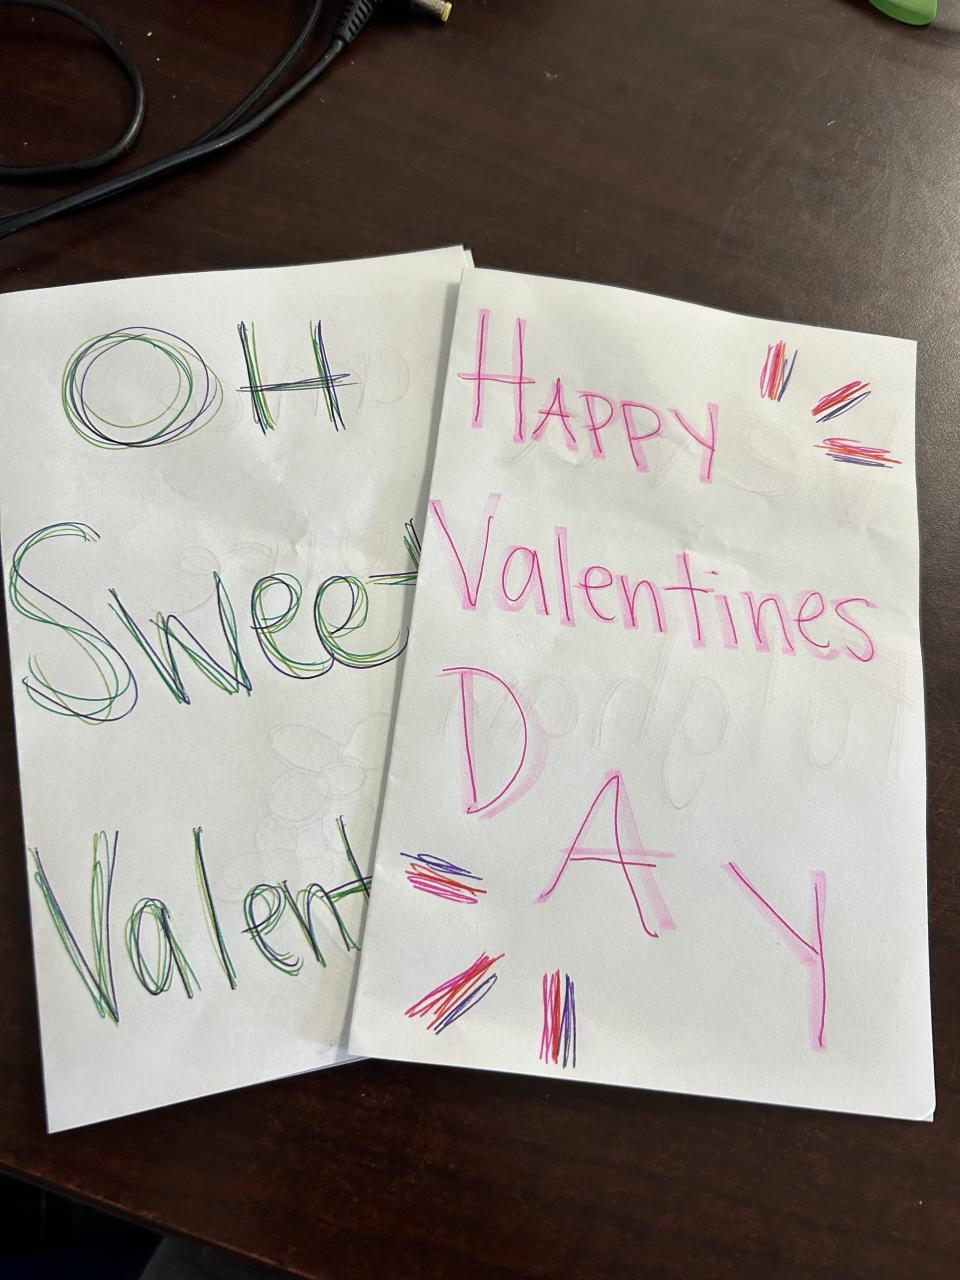 OH
Sweet
Valent
HAPPY
Valentines
DAY